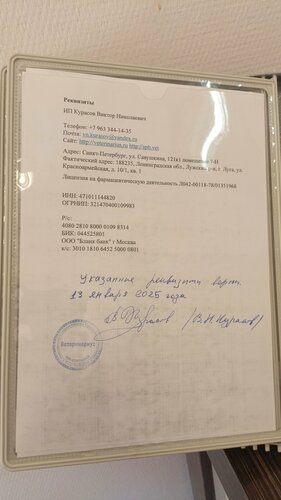 Реквизиты
ИП Курасов Виктор Николаевич
Телефон: +7 963 344-14-35
Почта: vn.kurasov@yandex.ru
Сайт: http://veterinarius.ru http://apb.vet
Адрес: Санкт-Петербург, ул. Савушкина, 121к1 помещение 7-Н
Фактический адрес: 188235, Ленинградская обл., Лужский р-н, г Луга, ул.
Красноармейская, д. 10/1, кв. 1
Лицензия на фармацевтическую деятельность Л042-00118-78/01351968
ИНН: 471011144820
ОГРНИП: 321470400109983
Р/с:
4080 2810 8000 0109 8314
БИК: 044525801
ООО "Бланк банк" г Москва
к/с: 3010 1810 6452 5000 0801
Указанные реквизиты верны.
13 января 2025 года
(В.Н. Курасов)
Ветеринариус